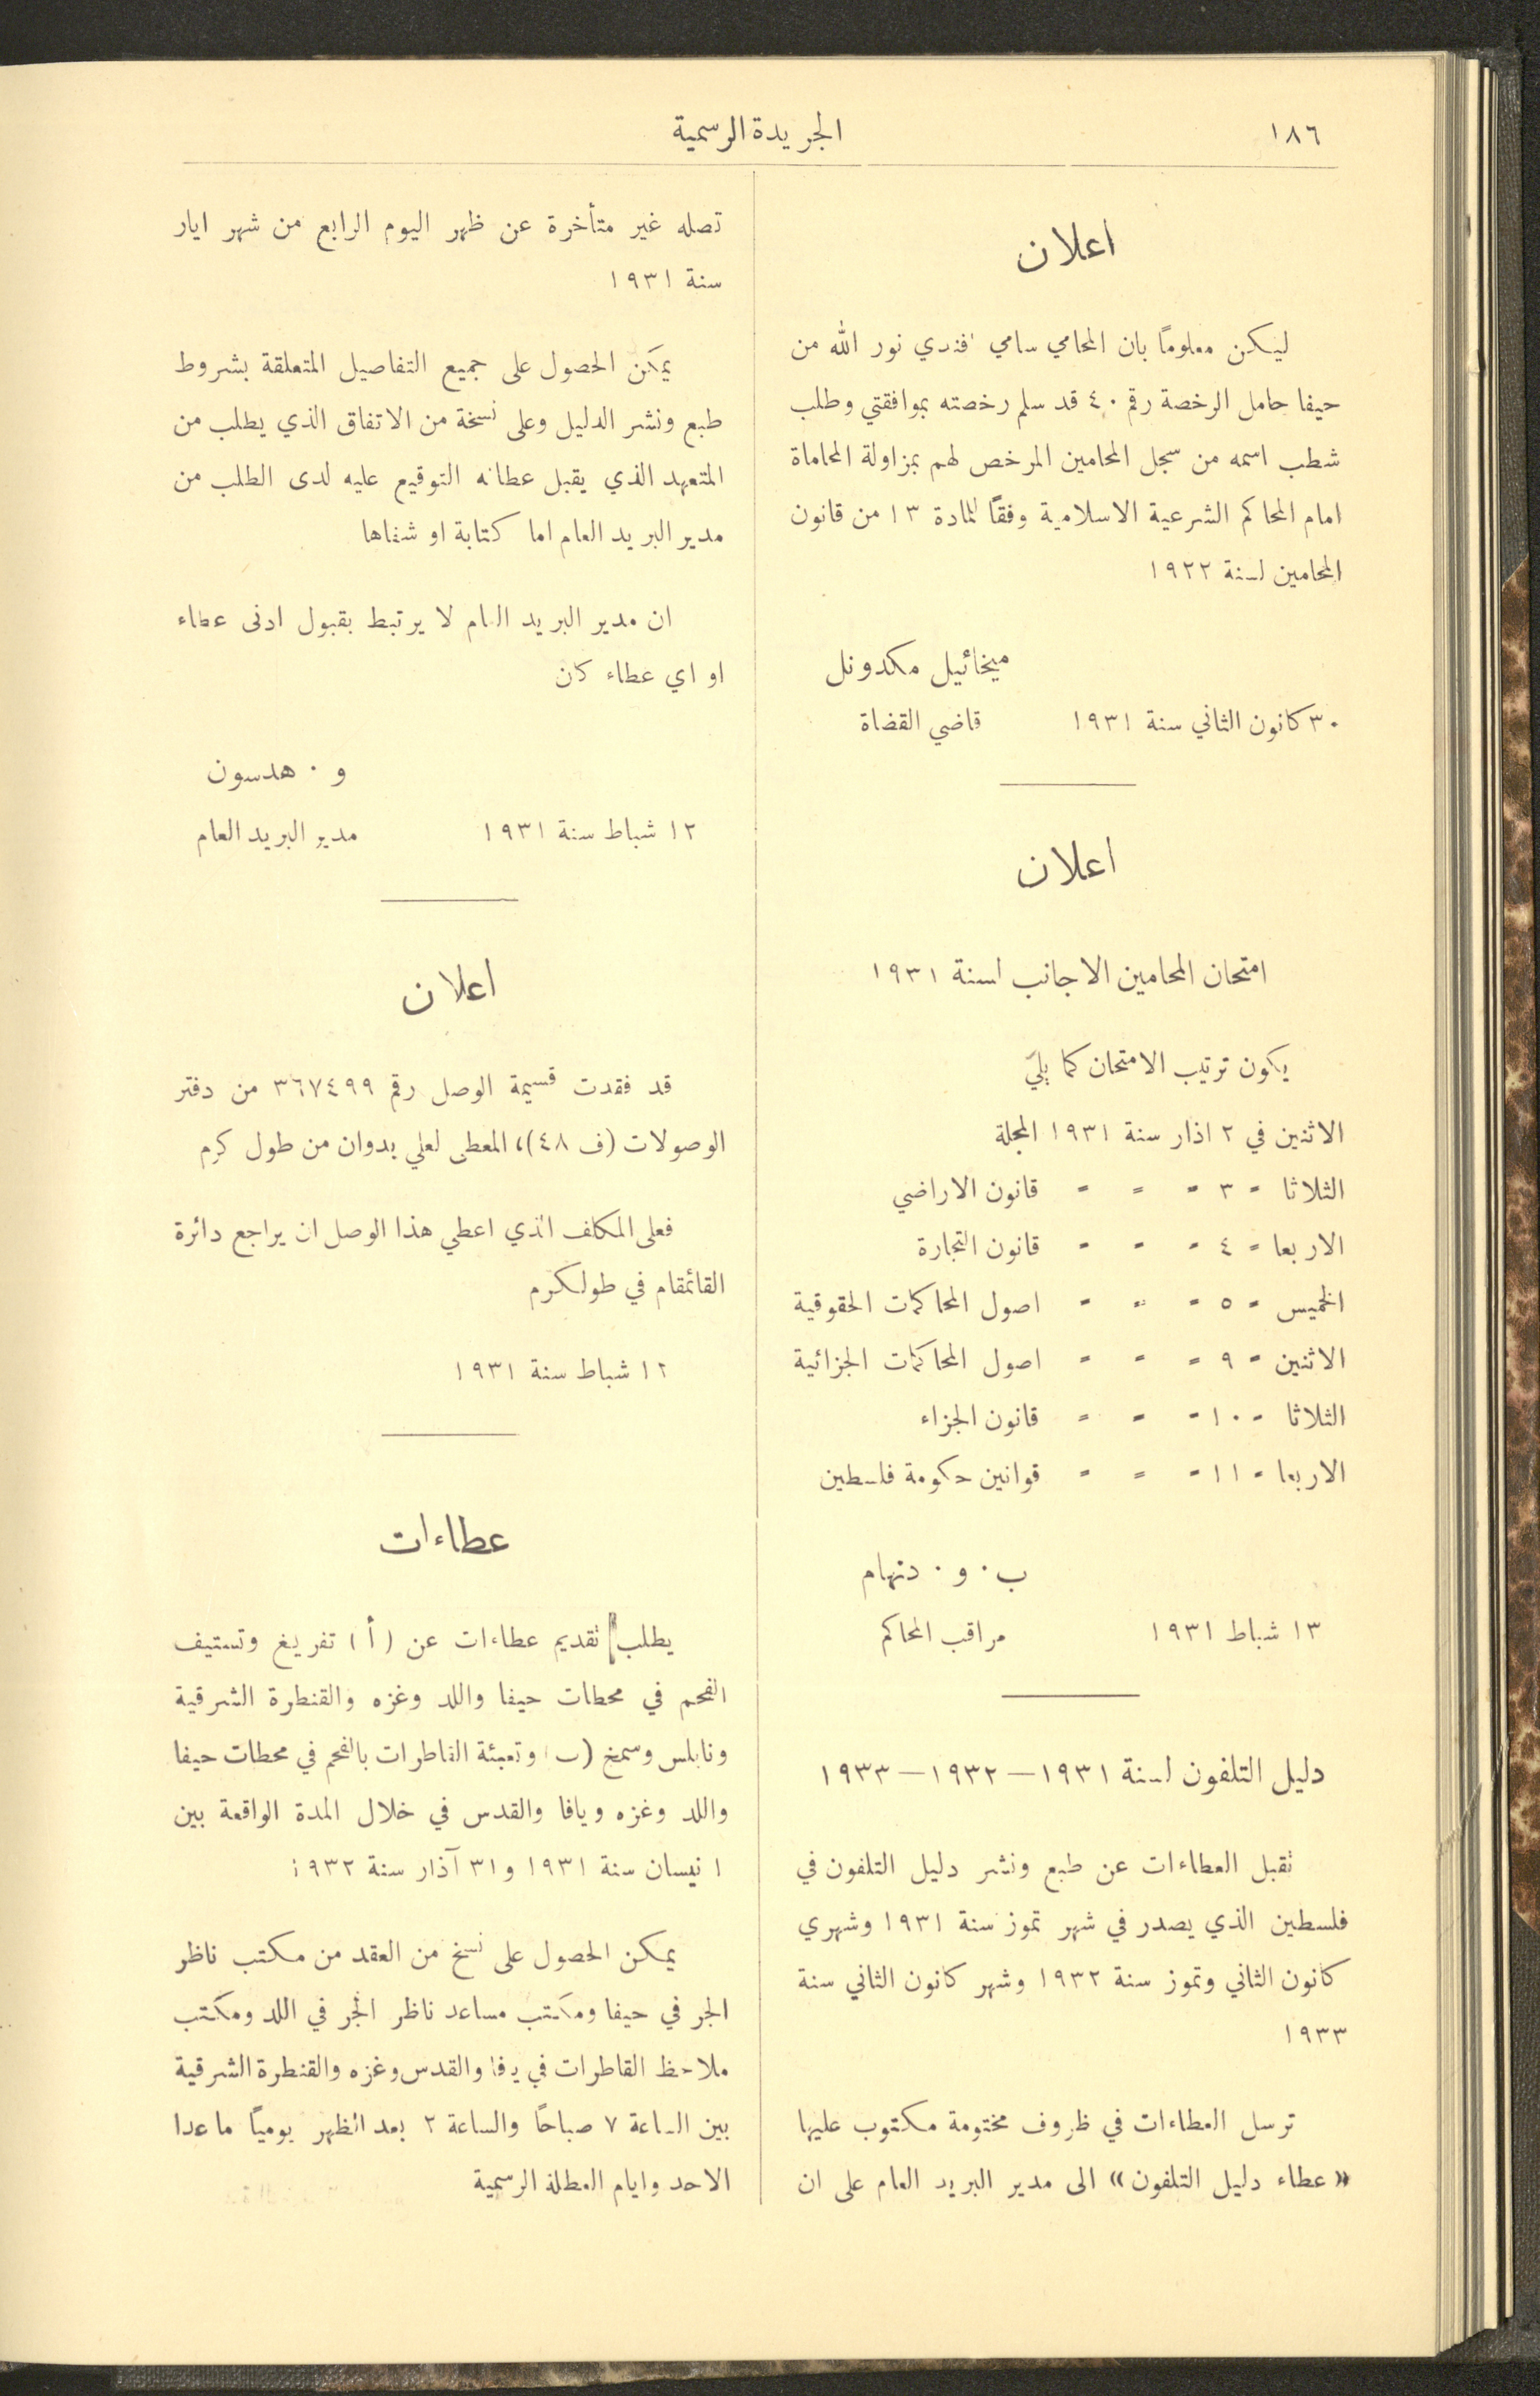 ١٨٦
الجريدة الرسمية
اعلان
ليكن معلومًا بان المحامي سامي افندي نور الله من
حيفا حامل الرخصة رقم ٤٠ قد سلم رخصته بموافقتي وطلب
شطب اسمه من سجل المحامين المرخص لهم بمزاولة المحاماة
امام المحاكم الشرعية الاسلامية وفقًا للمادة ١٣ من قانون
المحامين لسنة ١٩٢٢
ميخائيل مكدونل
٣٠ كانون الثاني سنة ١٩٣١ قاضي القضاة
اعلان
امتحان المحامين الاجانب لسنة ١٩٣١
يكون ترتيب الامتحان كما يلي
الاثنين في ٢ اذار سنة ١٩٣١ المجلة
الثلاثا = ٣ = = = قانون الاراضي
الاربعا = ٤ = = = قانون التجارة
الخميس = ٥ = = = اصول المحاكمات الحقوقية
الاثنين = ٩ = = = اصول المحاكمات الجزائية
الثلاثا = ١٠ = = = قانون الجزاء
الاربعا = ١١ = = = قوانين حكومة فلسطين
ب · و · دنهام
١٣ شباط ١٩٣١ مراقب المحاكم
دليل التلفون لسنة ١٩٣١—١٩٣٢—١٩٣٣
تقبل العطاءات عن طبع ونشر دليل التلفون في
فلسطين الذي يصدر في شهر تموز سنة ١٩٣١ وشهري
كانون الثاني وتموز سنة ١٩٣٢ وشهر كانون الثاني سنة
١٩٣٣
ترسل العطاءات في ظروف مختومة مكتوب عليها
«عطاء دليل التلفون» الى مدير البريد العام على ان
تصله غير متأخرة عن ظهر اليوم الرابع من شهر ايار
سنة ١٩٣١
يمكن الحصول على جميع التفاصيل المتعلقة بشروط
طبع ونشر الدليل وعلى نسخة من الاتفاق الذي يطلب من
المتعهد الذي يقبل عطائه التوقيع عليه لدى الطلب من
مدير البريد العام اما كتابة او شفاها
ان مدير البريد العام لا يرتبط بقبول ادنى عطاء
او اي عطاء كان
و · هدسون
١٢ شباط سنة ١٩٣١ مدير البريد العام
اعلان
قد فقدت قسيمة الوصل رقم ٣٦٧٤٩٩ من دفتر
الوصولات (ف ٤٨)، المعطى لعلي بدوان من طول كرم
فعلى المكلف الذي اعطي هذا الوصل ان يراجع دائرة
القائمقام في طولكرم
١٢ شباط سنة ١٩٣١
عطاءات
يطلب تقديم عطاءات عن (أ) تفريغ وتستيف
الفحم في محطات حيفا واللد وغزه والقنطرة الشرقية
ونابلس وسمخ (ب) وتعبئة القاطرات بالفحم في محطات حيفا
واللد وغزه ويافا والقدس في خلال المدة الواقعة بين
١ نيسان سنة ١٩٣١ و٣١ آذار سنة ١٩٣٢
يمكن الحصول على نسخ من العقد من مكتب ناظر
الجر في حيفا ومكتب مساعد ناظر الجر في اللد ومكتب
ملاحظ القاطرات في يافا والقدس وغزه والقنطرة الشرقية
بين الساعة ٧ صباحًا والساعة ٢ بعد الظهر يوميًا ما عدا
الاحد وايام العطلة الرسمية